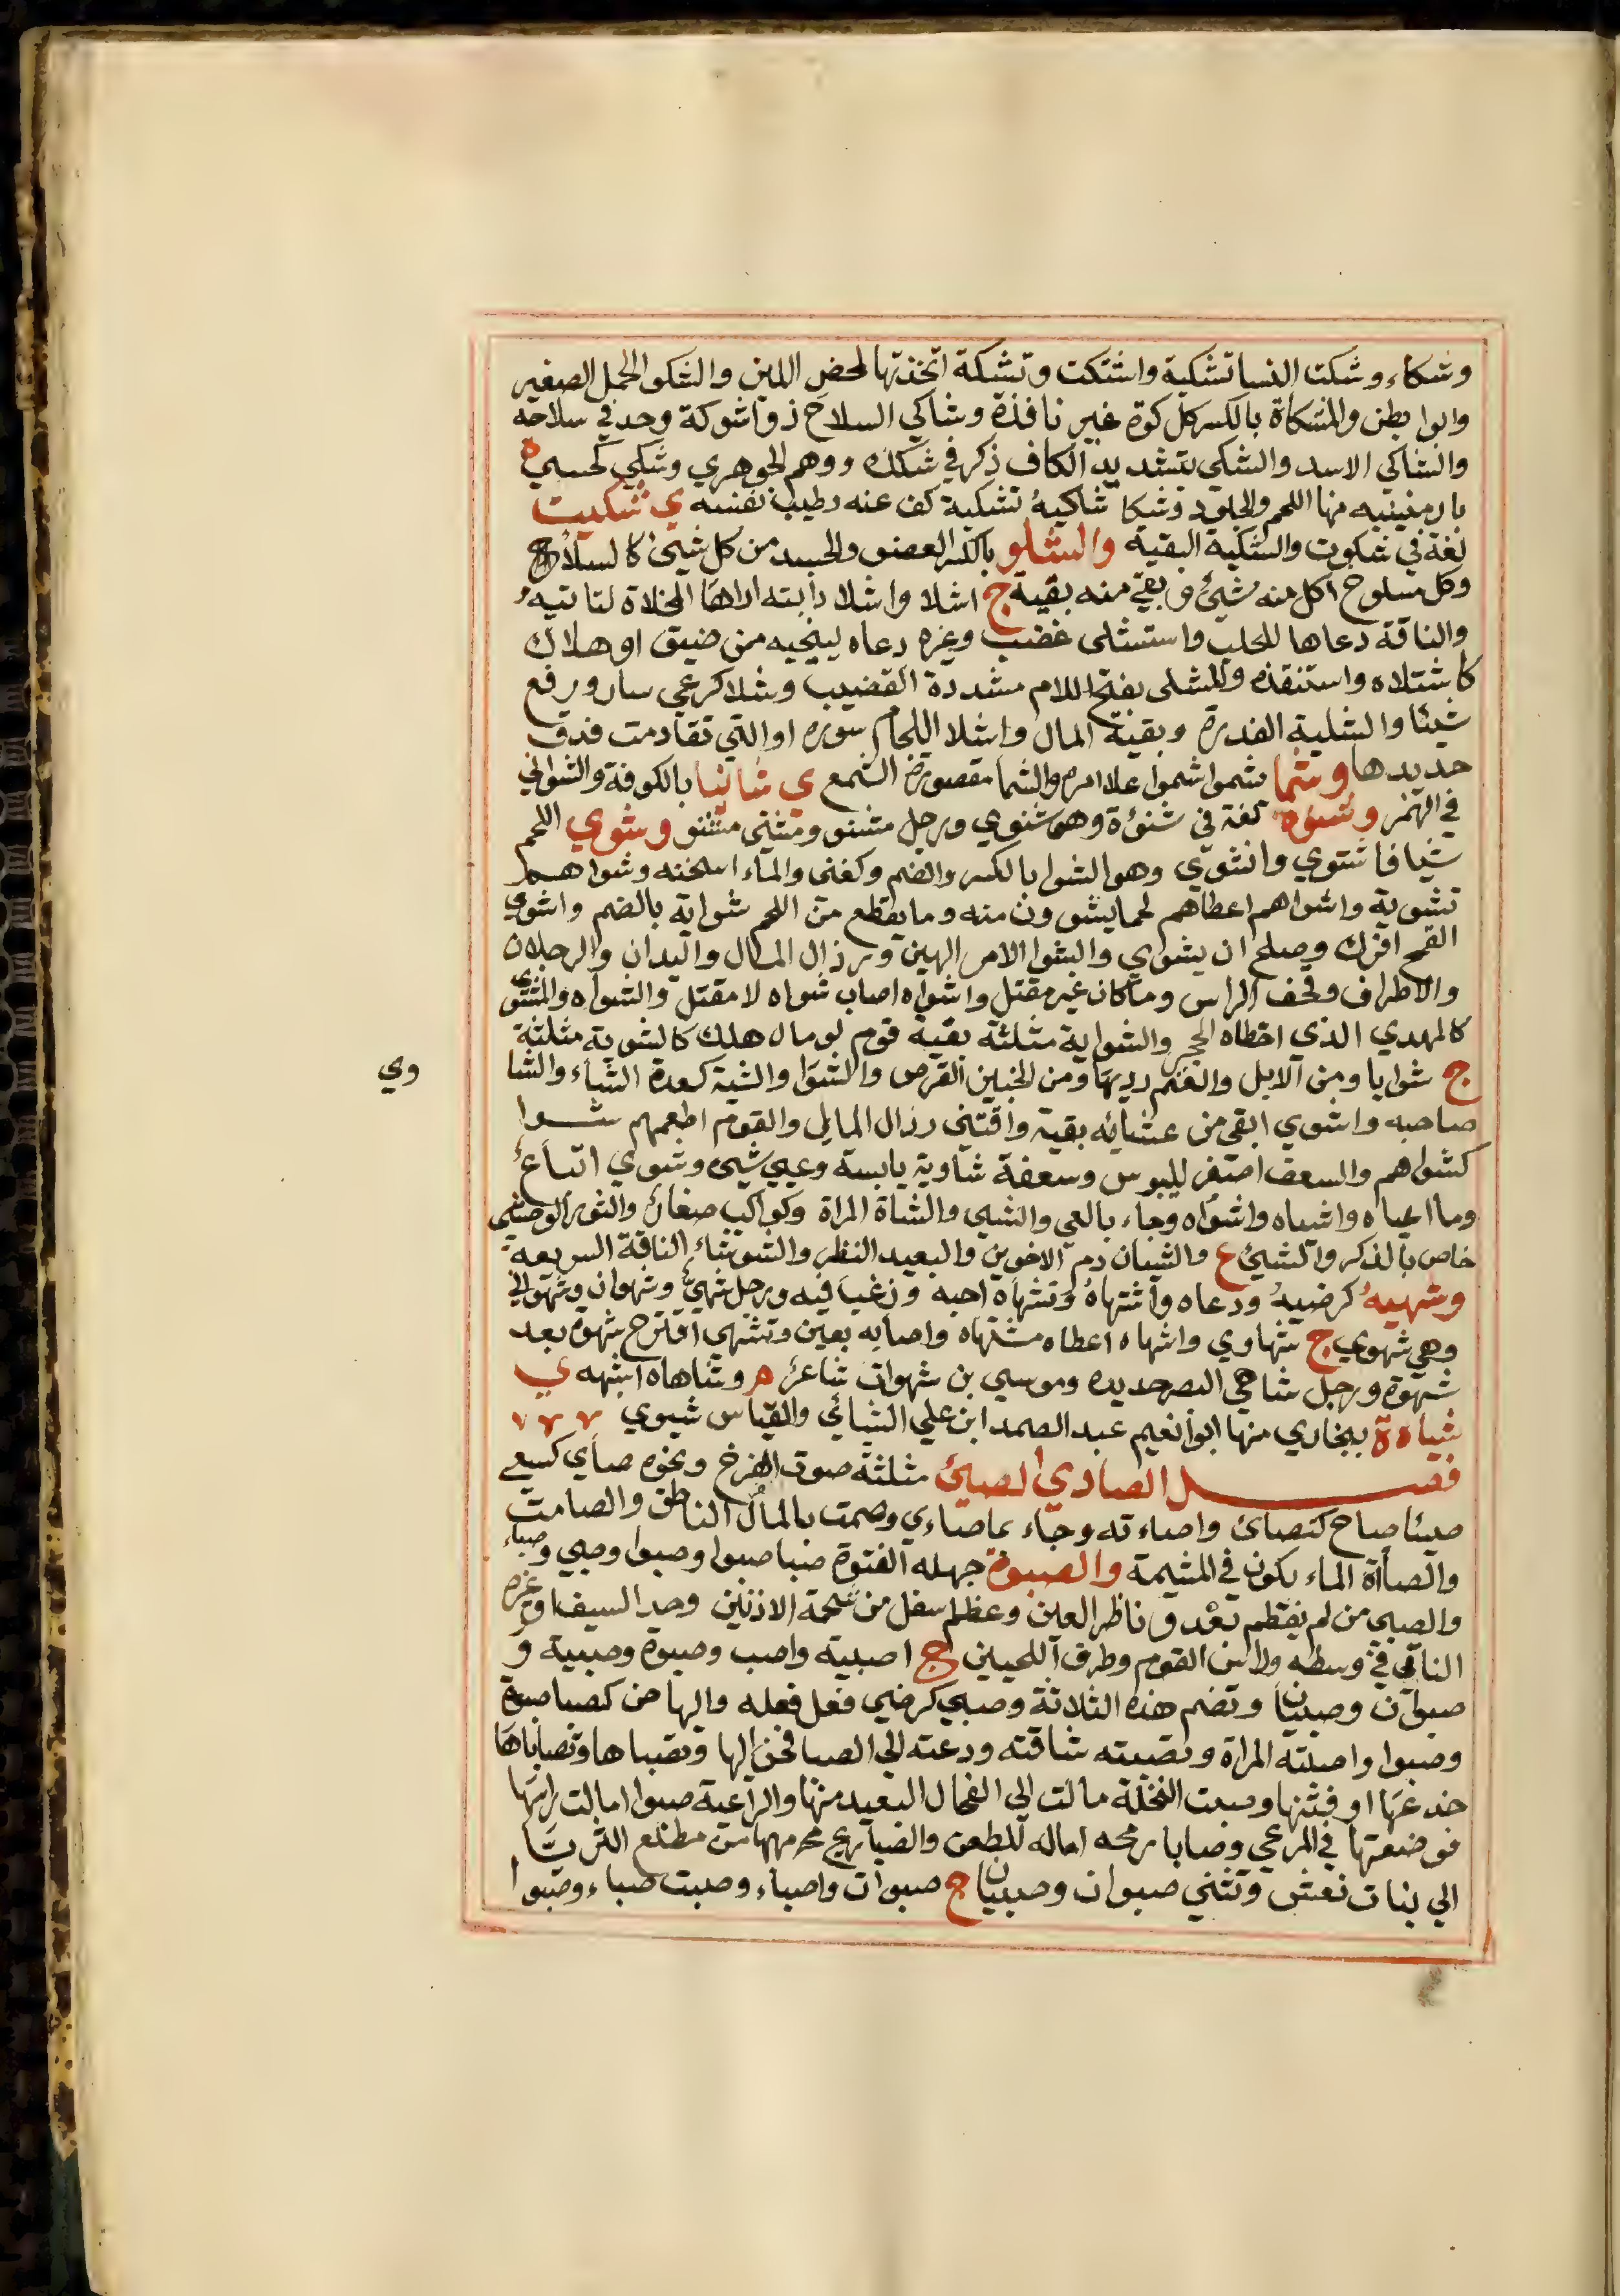 وشكاء وشكت النسا تشكية واشتكت وتشكة اتخذتها لمخض اللبن والشكو الحمل الصغير
وابوا بطن والمشكاة بالكسر كل كوة غير نافذة وشاكي السلاح ذوا شوكة وحد في سلاحه
والشاكي الاسد والشكي بتشديد الكاف ذكر في شكك ووهم الجوهري وشكي كحسي ه
بارمنييه منها اللجم والجلود وشكا شاكيهُ تشكية كف عنه وطيب نفسه ي شكيت
لغة في شكوت والشكية البقية والشلو بالكسر العضو والجسد من كل شيئ كالسلاح
وكل مسلوح اكل منه شيئ وبقي منه بقية ج اشلا واشلا دابته اراها المخلاة لتاتيهُ
والناقة دعاها للحلب واستشلى غضب وغيره دعاه لينجيه من ضيق او هلاك
كاشتلاه واستنقذه والمشلى بفتح اللام مشددة القضيب وشلا كرعي سار ورفع
شيئا والشلية الفدرة وبقية المال واشلا اللجام سوره او التي تقادمت فدق
حديدها وشما شموا شموا علا امره والشما مقصورة الشمع ي شانيا بالكوفة والشواني
في الهمز وشنوه لغة في شنؤة وهو شنوي ورجل مشنو ومشني مشنو وشوي اللحم
شيا فاشتوي وانشوي وهو الشوا بالكسر والضم وكغني والماء اسخنه وشواهم
تشوية واشواهم اعطاهم لحما يشوون منه وما يقطع من اللحم شواية بالضم واشوي
القمح افرك وصلح ان يشوي والشوا الامر الهين ورذال المال واليدان والرجلان
والاطراف وقحف الراس وما كان غير مقتل واشواه اصاب شواه لا مقتل والشواه والمشوي
كالمهدي الذي اخطاه الحجر والشواية مثلثة بقية قوم او مال هلك كالشوية مثلثة
ج شوايا ومن الابل والغنم رديها ومن الخبين القرص والشوا والشية كعدة الشياء والشا
وي
صاحبه واشوي ابقي من عشائه بقية واقتني رذال المايل والقوم اطعمهم شوا
كشواهم والسعف اصفر لليبوس وسعفة شاوية يابسة وعيي شيى وشوي اتباع
وما اعياه واشياه واشواه وجاء بالعي والشي والشاة المراة وكواكب صغار والثور الوحشي
خاص بالذكر والشيئ ع والشيان دم الاخوين والبعيد النظر والشوشاء الناقة السريعة
وشهيهُ كرضيهُ ودعاه واشتهاهُ وتشهاه احبه ورغب فيه ورجل شهيّ وشهوان وشهواني
وهي شهوي ج شهاوي واشهاه اعطاه مشتهاه واصابه بعين وتشهى اقترح شهوة بعد
شهوة ورجل شاهي البصر حديده وموسي بن شهوات شاعر م وشاهاه اشبهه ي
شياءة ببخاري منها ابوا نعيم عبد الصمد ابن علي الشيائي والقياس شيوي
فصل الصاد ي الصيئ مثلثة صوت الفرخ ونحوه صأي كسعي
صيئا صاح كتصائ واصاءته وجاء بما صاءي وصمت بالمال الناطق والصامت
والصأاة الماء يكون في المشيمة والصبوة جهله الفتوة صبا صبوا وصبوا وصبي وصباء
والصبي من لم يفطم بعد وناظر العين وعظم اسفل من شحمة الاذنين وحد السيف او غيره
الناتي في وسطه وراس القوم وطرف اللحيين ج اصبية واصب وصبوة وصبية و
صبوان وصبيان وتضم هذه الثلاثة وصبي كرضي فعل فعله واليها حن كصبا صبوة
وصبوا واصبته المراة وتصبته شاقته ودعته الي الصبا فحن اليها وتصباها وتصاباها
خدعها او فتنها وصبت النخلة مالت الي الفحال البعيد منها والراعية صبوا امالت راسها
فوضعتها في المرعي وصابا رمحه اماله للطعن والصبا ريح مهبها من مطلع الثريا
الي بنات نعش وتثني صبوان وصبيان ج صبوات واصباء وصبت صباء وصبوا